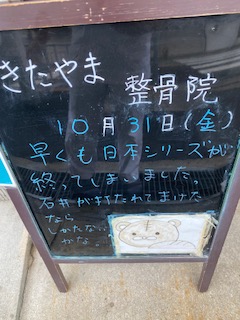 きたやま
整骨院
10月31日(金)
早くも日本シリーズが
終ってしまいました。
石井が打たれてまけた
なら
しかたないい
かな。